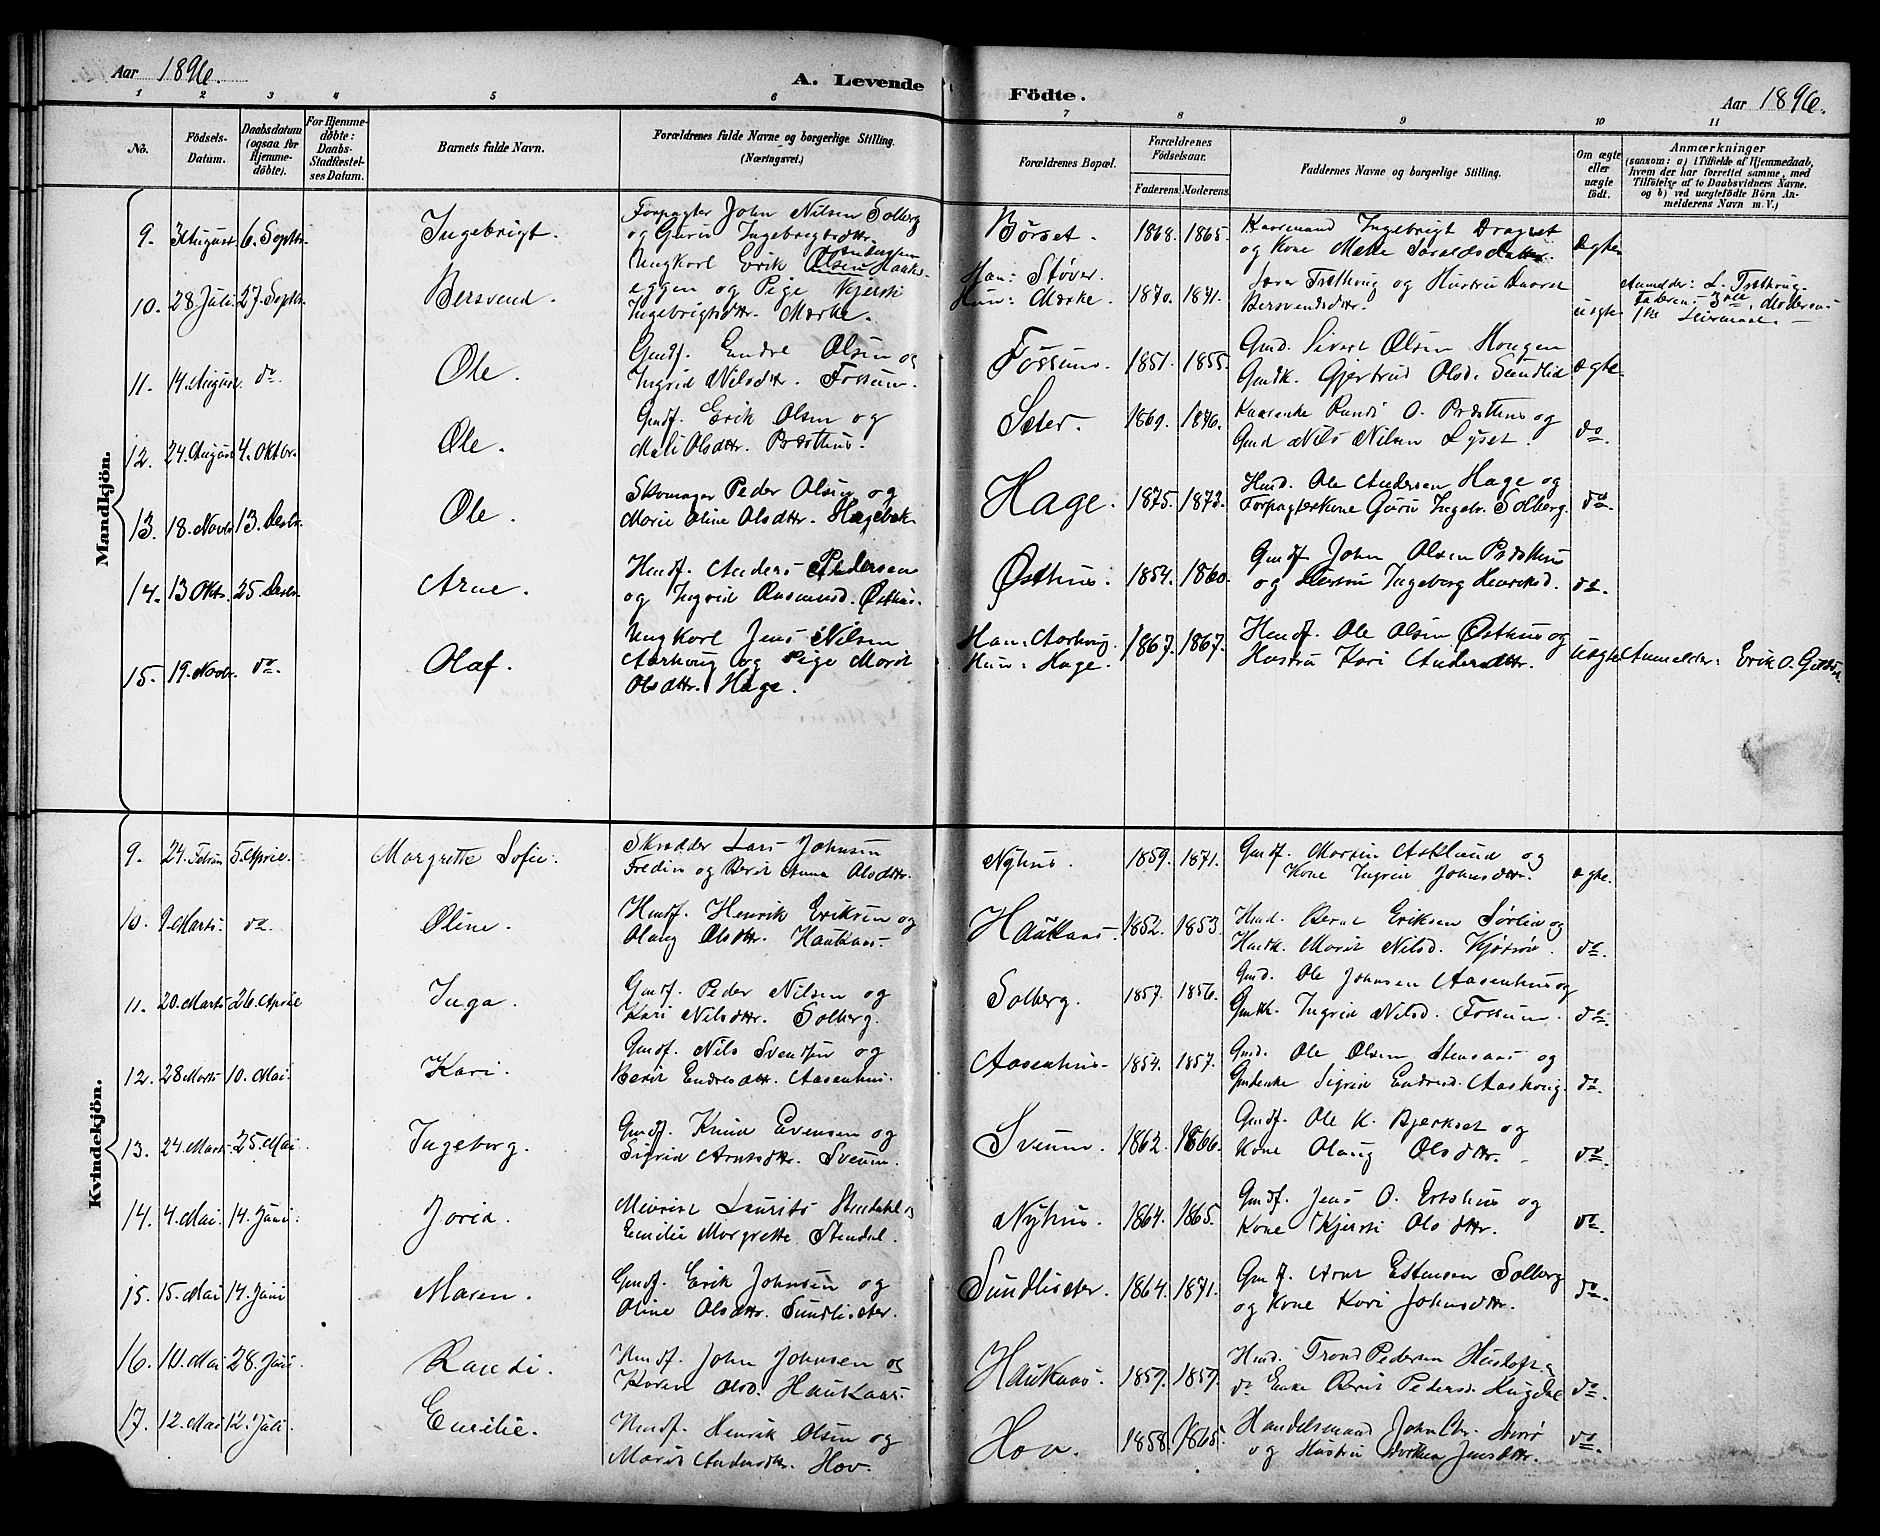 Aar 1896.
A. Levende Födte.
Aar 1896.
1 2 3 4 5 6 7 8 9 10 11
No.
Födsels-Datum.
Daabsdatum (ogsaa for Hjemmedöbte).
For Hjemmedöbte: Daabs-Stadfæstelses Datum.
Barnets fulde Navn.
Forældrenes fulde Navne og borgerlige Stilling. (Næringsvei.)
Forældrenes Bopæl.
Forældrenes Födselsaar.
Faderens. Moderens.
Faddernes Navne og borgerlige Stilling.
Om ægte eller uægte födt.
Anmærkninger
(saasom: a) i Tilfælde af Hjemmedaab, hvem der har forrettet samme, med Tilföielse af to Daabsvidners Navne. og b) ved uægtefödte Börn Anmelderens Navn m. V.)
Mandkjön.
9. 31 August 6. Septbr. Ingebrigt. Forpagter John Nilsen Solberg
og Guru Ingebrigtsdtr. Børset. 1868. 1865. Kaarmand Ingebrigt Dragset
og Kone Mette ægte
10. 28 Juli 27. Septbr. Bersvend. Ungkarl Erik Olsen
eggen og Pige Kjersti
Ingebrigtsdtr. Mærke. Han: Støver.
Hun: Mærke. 1870. 1871. og Hustru
Bersvendsdtr. uægte Anmelder: L.
Faderens 3die, Moderens
1ste Leiermaal.
11. 14. August do. Ole. Gmdf. Endre Olsen og
Ingrid Nilsdtr. Fossum. Fossum. 1851. 1855. Gmd. Sivert Olsen Haugen
Gmdk. Gjertrud Olsd. Sundlid ægte
12. 24. August 4. Oktbr. Ole. Gmdf. Erik Olsen og
Mali Olsdtr. Præsthus. Seter. 1869. 1876. Kaarenke Randi O. Præsthus og
Gmd Nils Nilsen Lyset. do.
13. 18. Novbr. 13. Decbr. Ole. Skomager Peder Olsen og
Marie Oline Olsdtr. Hagebak. Hage. 1875. 1873. Husd. Ole Andersen Hage og
Forpagterkone Guru Ingebr. Solberg. do.
14. 13 Oktr. 25. Decbr. Arne. Husdf. Anders Pedersen
og Ingrid Østhus. Østhus. 1854. 1860. Gmdf. John Olsen Præsthus
og Hustru Ingeborg do.
15. 19. Novbr. do. Olaf. Ungkarl Jens Nilsen
Aashaug og Pige Marit
Olsdtr. Hage. Han: Aashaug.
Hun: Hage. 1867. 1867. Husdf. Ole Olsen Østhus og
Hustru Kari Andersdtr. uægte Anmelder: Erik O.
Kvindekjön.
9. 24. Febru 5. April. Margrette Sofie. Skrædder Lars Johnsen
Fredin og Berit Anna Olsdtr. Nyhus. 1859. 1871. Gmdf. Morten Asklund og
Kone Ingrid Johnsdtr. ægte.
10. 9. Marts. do. Oline. Husdf. Henrik Eriksen og
Olaug Olsdtr. Haukaas. Haukaas. 1852. 1853. Husd. Bernt Eriksen Sørlien og
Husdk. Marit Nilsd. do.
11. 20. Marts 26. April Inga. Gmdf. Peder Nilsen og
Kari Nilsdtr. Solberg. Solberg. 1857. 1856. Gmd. Ole Johnsen Aasenhus og
Gmdk. Ingrid Nilsd. Fossum. do.
12. 28 Marts. 10. Mai. Kari. Gmdf. Nils Svendsen og
Berit Endresdtr. Aasenhus. Aasenhus. 1854. 1857. Gmd. Ole Olsen Stenaas og
Gmdenke Sigrid Endresd. Aashaug. do.
13. 24. Marts. 25. Mai. Ingeborg. Gmdf. Knud Evensen og
Sigrid Arntsdtr. Sveum. Sveum. 1862. 1866. Gmdf. Ole K. Bjerkset og
Kone Olaug Olsdtr. do.
14. 4. Mai. 14. Juni. Jorid. Meierist Laurits Stendahl og
Emilie Margrette Stendal. Nyhus. 1864. 1865. Gmdf. Jens O. Ertshus og
Kone Kjersti Olsdtr. do
15. 15. Mai 14. Juni Maren. Gmdf. Erik Johnsen og
Oline Olsdtr. Sundliseter. Sundliseter. 1864. 1871. Gmdf. Arnt Estensen Solberg
og Kone Kari Johnsdtr. do.
16. 10. Mai 28. Juni Randi. Husdf. John Johnsen og
Karen Olsd. Haukaas. Haukaas. 1859. 1859. Husd. Trond Pedersen Husloft og
do Enke Berit Pedersd. Hugdal do.
17. 12. Mai 12. Juli. Emilie. Husdf. Henrik Olsen og
Marit Andersdtr. Hov. Hov. 1858. 1865. Handelsmand John Chr.
og Hustru Dorthea Jensdtr. do.